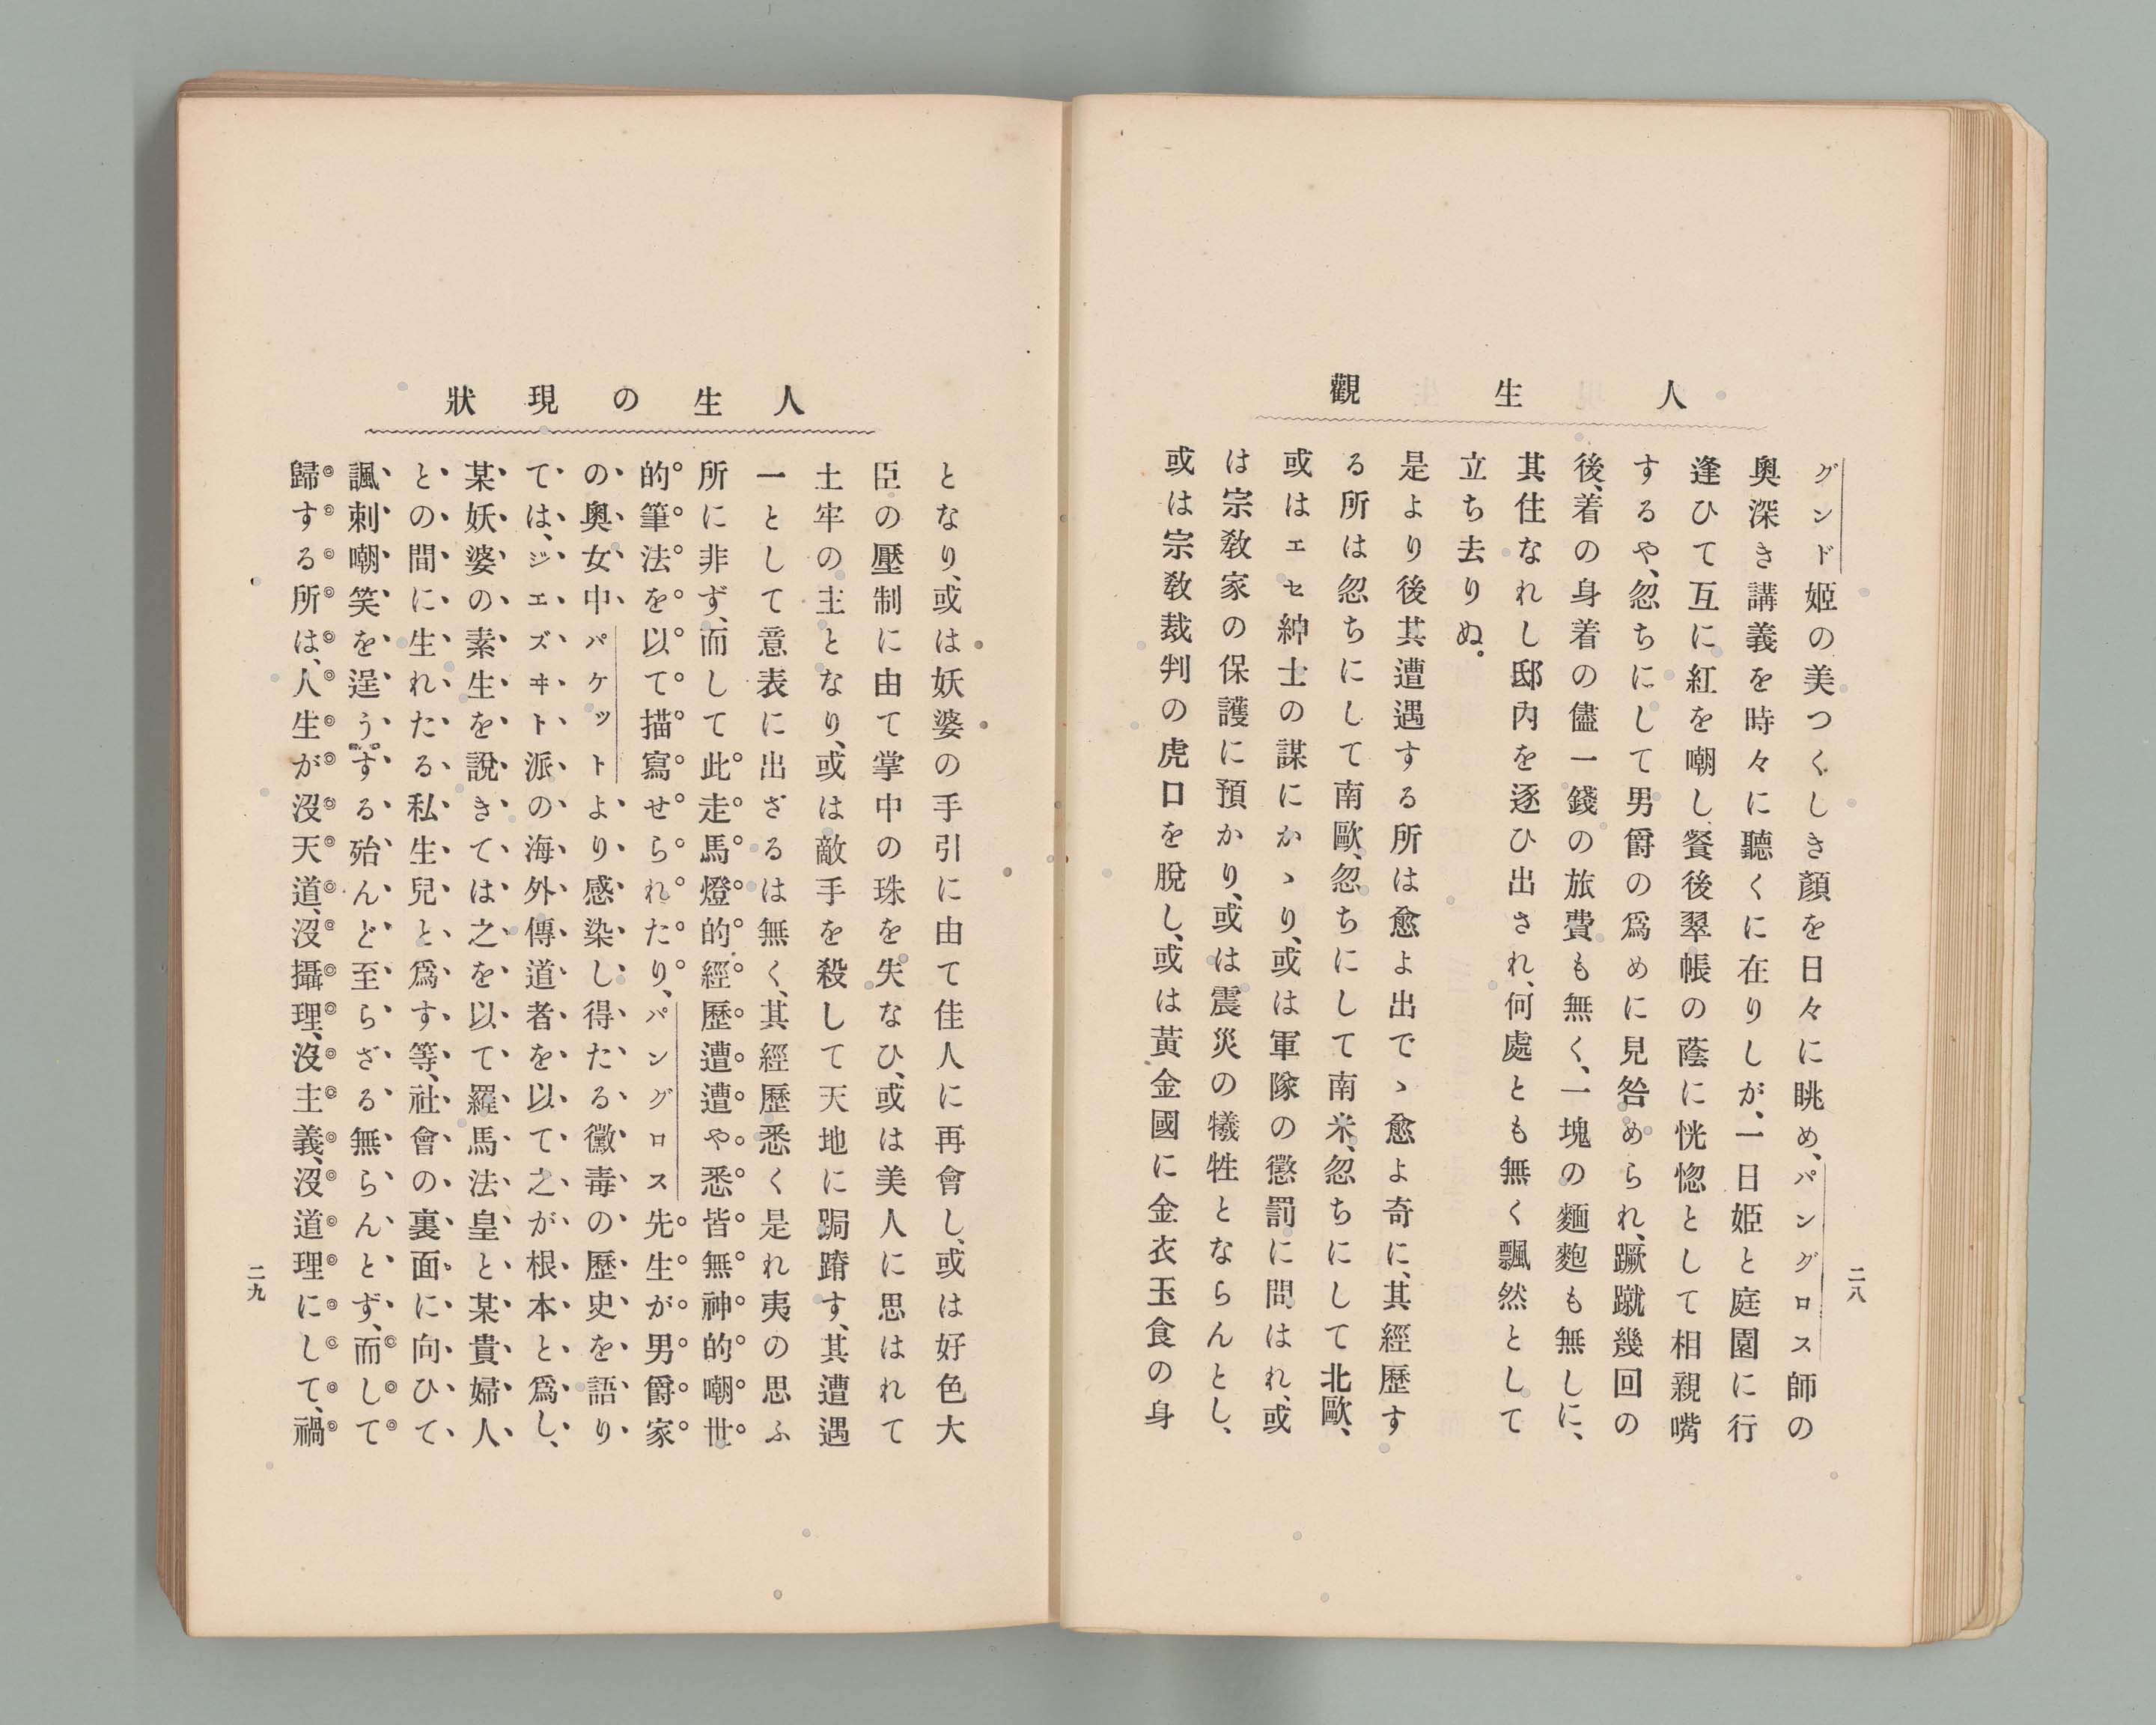 人生觀
二八
グンド姬の美つくしき顏を日々に眺め、パングロス師の
奧深き講義を時々に聽くに在りしが、一日姬と庭園に行
逢ひて互に紅を嘲し、餐後翠帳の蔭に恍惚として相親嘴
するや、忽ちにして男爵の爲めに見咎められ、蹶蹴幾回の
後、着の身着の儘一錢の旅費も無く、一塊の麵麭も無しに、
其住なれし邸內を逐ひ出され、何處とも無く飄然として
立ち去りぬ。
是より後其遭遇する所は愈よ出でゝ愈よ奇に、其經歷す
る所は忽ちにして南歐、忽ちにして南米、忽ちにして北歐、
或はエセ紳士の謀にかゝり、或は軍隊の懲罰に問はれ、或
は宗敎家の保護に預かり、或は震災の犧牲とならんとし、
或は宗敎裁判の虎口を脫し、或は黃金國に金衣玉食の身
人生の現狀
となり、或は妖婆の手引に由て佳人に再會し、或は好色大
臣の壓制に由て掌中の珠を失なひ、或は美人に思はれて
土牢の主となり、或は敵手を殺して天地に跼蹐す、其遭遇
一として意表に出ざるは無く、其經歷悉く是れ夷の思ふ
所に非ず、而して此走馬燈的經歷遭遭や悉皆無神的嘲世
的筆法を以て描寫せられたり、パングロス先生が男爵家
の奧女中パケットより感染し得たる黴毒の歷史を語り
ては、ジエズヰト派の海外傳道者を以て之が根本と爲し、
某妖婆の素生を說きては之を以て羅馬法皇と某貴婦人
との間に生れたる私生兒と爲す等、社會の裏面に向ひて
諷刺嘲笑を逞うする殆んど至らざる無らんとず、而して
歸する所は、人生が沒天道、沒攝理、沒主義、沒道理にして、禍
二九